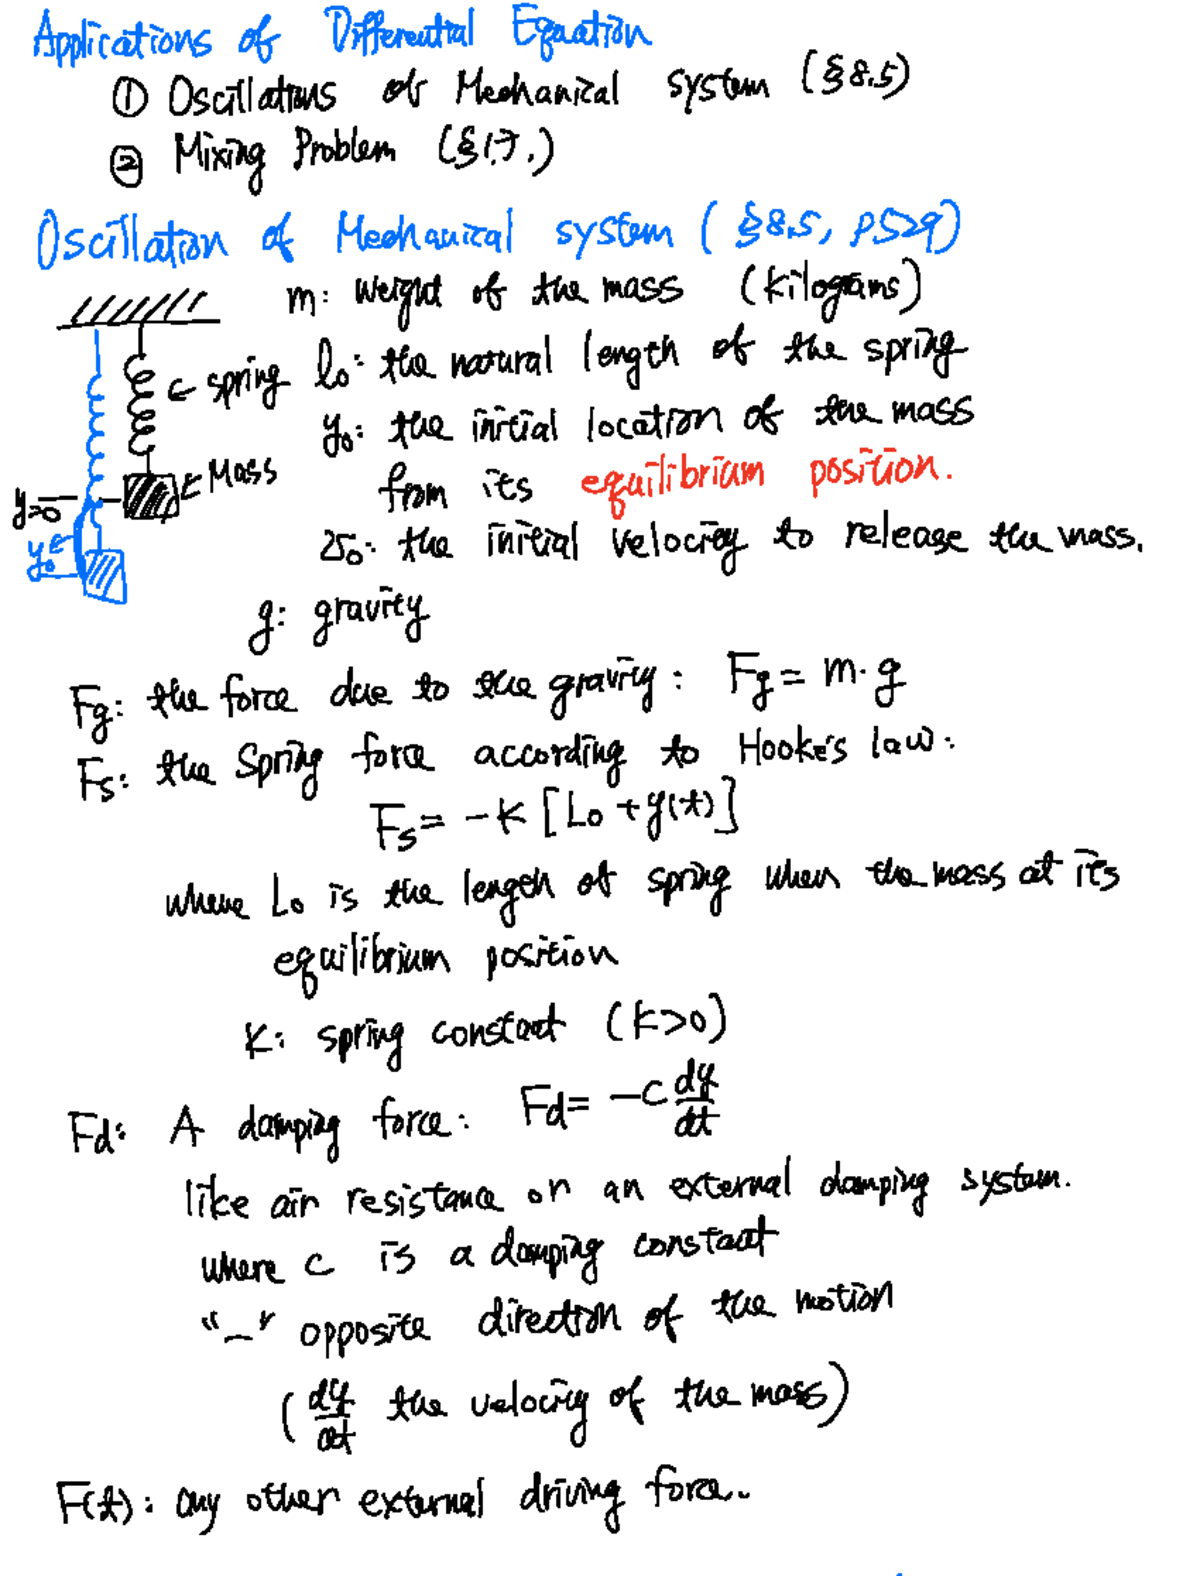 Applications of Differential Equation
① Oscillations of Mechanical system (§8.5)
② Mixing Problem (§1.7.)
Oscillation of Mechanical system (§8.5, P529)
m: weight of the mass (kilograms)
← spring
l₀: the natural length of the spring
y₀: the initial location of the mass
← Mass
from its equilibrium position.
y=0
y₀
v₀: the initial velocity to release the mass.
g: gravity
Fg: the force due to the gravity: Fg = m·g
Fs: the Spring force according to Hooke's law:
Fs = -K [L₀ + y(t)]
where L₀ is the length of spring when the mass at its
equilibrium position
K: spring constant (k>0)
Fd: A damping force: Fd = -c dy/dt
like air resistance or an external damping system.
where c is a damping constant
"-" opposite direction of the motion
(dy/dt the velocity of the mass)
F(t): any other external driving force.